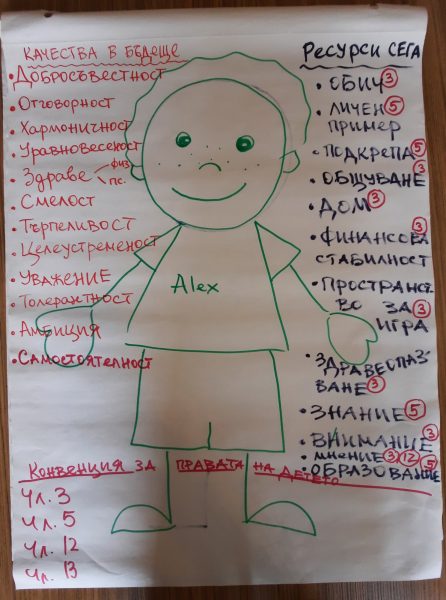 КАЧЕСТВА В БЪДЕЩЕ
• Добросъвестност
• Отговорност
• Хармоничност
• Уравновесеност
• Здраве физ.
пс.
• Смелост
• Търпеливост
• Целеустременост
• Уважение
• Толерантност
• Амбиция
• Самостоятелност
Alex
Ресурси сега
• ОБИЧ 3
• ЛИЧЕН 5
ПРИМЕР
• ПОДКРЕПА 5
• ОБЩУВАНЕ 3
• ДОМ 3
• ФИНАНСОВА 3
СТАБИЛНОСТ
• ПРОСТРАНСТ
ВО ЗА 3
ИГРА
• ЗДРАВЕОПАЗ-
ВАНЕ 3
• ЗНАНИЕ 5
• ВНИМАНИЕ 3
• МНЕНИЕ 3 12
• ОБРАЗОВАНИЕ 5
Конвенция за правата на детето
Чл. 3
Чл. 5
Чл. 12
Чл. 13